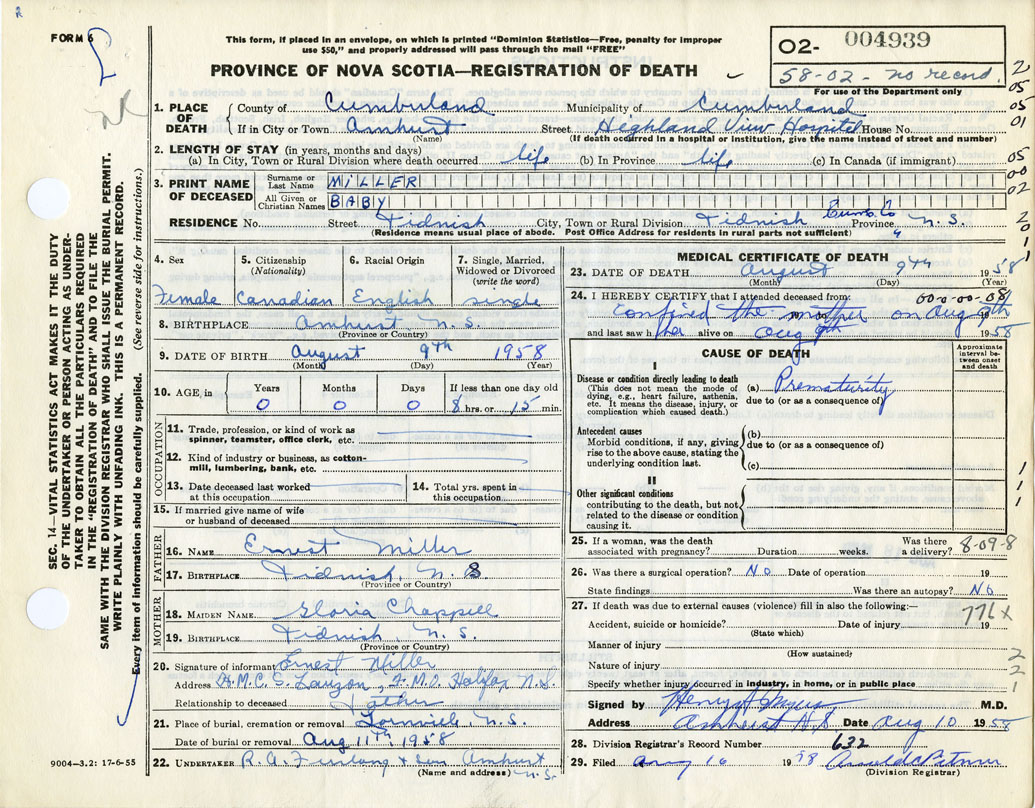 FORM 6
This form, if placed in an envelope, on which is printed "Dominion Statistics—Free, penalty for improper
use $50," and properly addressed will pass through the mail "FREE"
PROVINCE OF NOVA SCOTIA—REGISTRATION OF DEATH
O2- 004939
58-02 - no record.
For use of the Department only
1. PLACE OF DEATH
County of Cumberland Municipality of Cumberland
If in City or Town Amhurst Street Highland View Hospital House No.
(Name) (If death occurred in a hospital or institution, give the name instead of street and number)
2. LENGTH OF STAY (in years, months and days)
(a) In City, Town or Rural Division where death occurred life (b) In Province life (c) In Canada (if immigrant)
3. PRINT NAME OF DECEASED
Surname or Last Name MILLER
All Given or Christian Names BABY
RESIDENCE No. Street Tidnish City, Town or Rural Division Tidnish Cumb. Co Province N.S.
(Residence means usual place of abode. Post Office Address for residents in rural parts not sufficient)
2
05
05
01
05
00
02
2
0
1
4. Sex
Female
5. Citizenship
(Nationality)
Canadian
6. Racial Origin
English
7. Single, Married,
Widowed or Divorced
(write the word)
single
8. BIRTHPLACE Amhurst N.S.
(Province or Country)
9. DATE OF BIRTH August 9th 1958
(Month) (Day) (Year)
10. AGE, in
Years Months Days If less than one day old
0 0 0 8 hrs. or 15 min.
OCCUPATION
11. Trade, profession, or kind of work as
spinner, teamster, office clerk, etc.
12. Kind of industry or business, as cotton-
mill, lumbering, bank, etc.
13. Date deceased last worked
at this occupation
14. Total yrs. spent in
this occupation
15. If married give name of wife
or husband of deceased
FATHER
16. NAME Ernest Miller
17. BIRTHPLACE Tidnish, N. S
(Province or Country)
MOTHER
18. MAIDEN NAME Gloria Chappell
19. BIRTHPLACE Tidnish, N. S.
(Province or Country)
20. Signature of informant Ernest Miller
Address H.M.C.S. Lauzon, F.M.O. Halifax N.S.
Relationship to deceased Father
21. Place of burial, cremation or removal N.S.
Date of burial or removal Aug 11th 1958
22. UNDERTAKER R. A. Furlong & Son Amhurst
(Name and address) N.S.
MEDICAL CERTIFICATE OF DEATH
23. DATE OF DEATH August 9th 1958
(Month) (Day) (Year)
24. I HEREBY CERTIFY that I attended deceased from: 000-00-08
Confined the mother on Aug 9th
and last saw her alive on Aug 9th 1958
CAUSE OF DEATH
Approximate
interval be-
tween onset
and death
I
Disease or condition directly leading to death
(This does not mean the mode of
dying, e.g., heart failure, asthenia,
etc. It means the disease, injury, or
complication which caused death.)
(a) Prematurity
due to (or as a consequence of)
Antecedent causes
Morbid conditions, if any, giving
rise to the above cause, stating the
underlying condition last.
(b)
due to (or as a consequence of)
(c)
II
Other significant conditions
contributing to the death, but not
related to the disease or condition
causing it.
1
1
1
25. If a woman, was the death
associated with pregnancy? Duration weeks. Was there
a delivery? 8-09-8
26. Was there a surgical operation? No Date of operation 19
State findings Was there an autopsy? No
27. If death was due to external causes (violence) fill in also the following:— 776x
Accident, suicide or homicide? Date of injury 19
(State which)
Manner of injury
(How sustained)
Nature of injury
Specify whether injury occurred in industry, in home, or in public place
2
2
1
Signed by M.D.
Address Amherst N.S Date Aug 10 1958
28. Division Registrar's Record Number 632
29. Filed Aug 16 1958
(Division Registrar)
SEC. 14—VITAL STATISTICS ACT MAKES IT THE DUTY
OF THE UNDERTAKER OR PERSON ACTING AS UNDER-
TAKER TO OBTAIN ALL THE PARTICULARS REQUIRED
IN THE "REGISTRATION OF DEATH" AND TO FILE THE
SAME WITH THE DIVISION REGISTRAR WHO SHALL ISSUE THE BURIAL PERMIT.
WRITE PLAINLY WITH UNFADING INK. THIS IS A PERMANENT RECORD.
Every item of information should be carefully supplied. (See reverse side for instructions.)
9004—3.2: 17-6-55